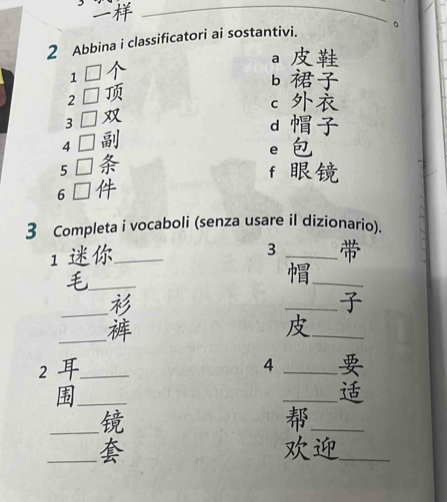 一样 ____。
2 Abbina i classificatori ai sostantivi.
1 □ 个
2 □ 顶
3 □ 双
4 □ 副
5 □ 条
6 □ 件
a 皮鞋
b 裙子
c 外衣
d 帽子
e 包
f 眼镜
3 Completa i vocaboli (senza usare il dizionario).
1 迷你____
毛____
____衫
____裤
2 耳____
围____
____镜
____套
3 ____带
帽____
____子
皮____
4 ____要
____适
帮____
欢迎____